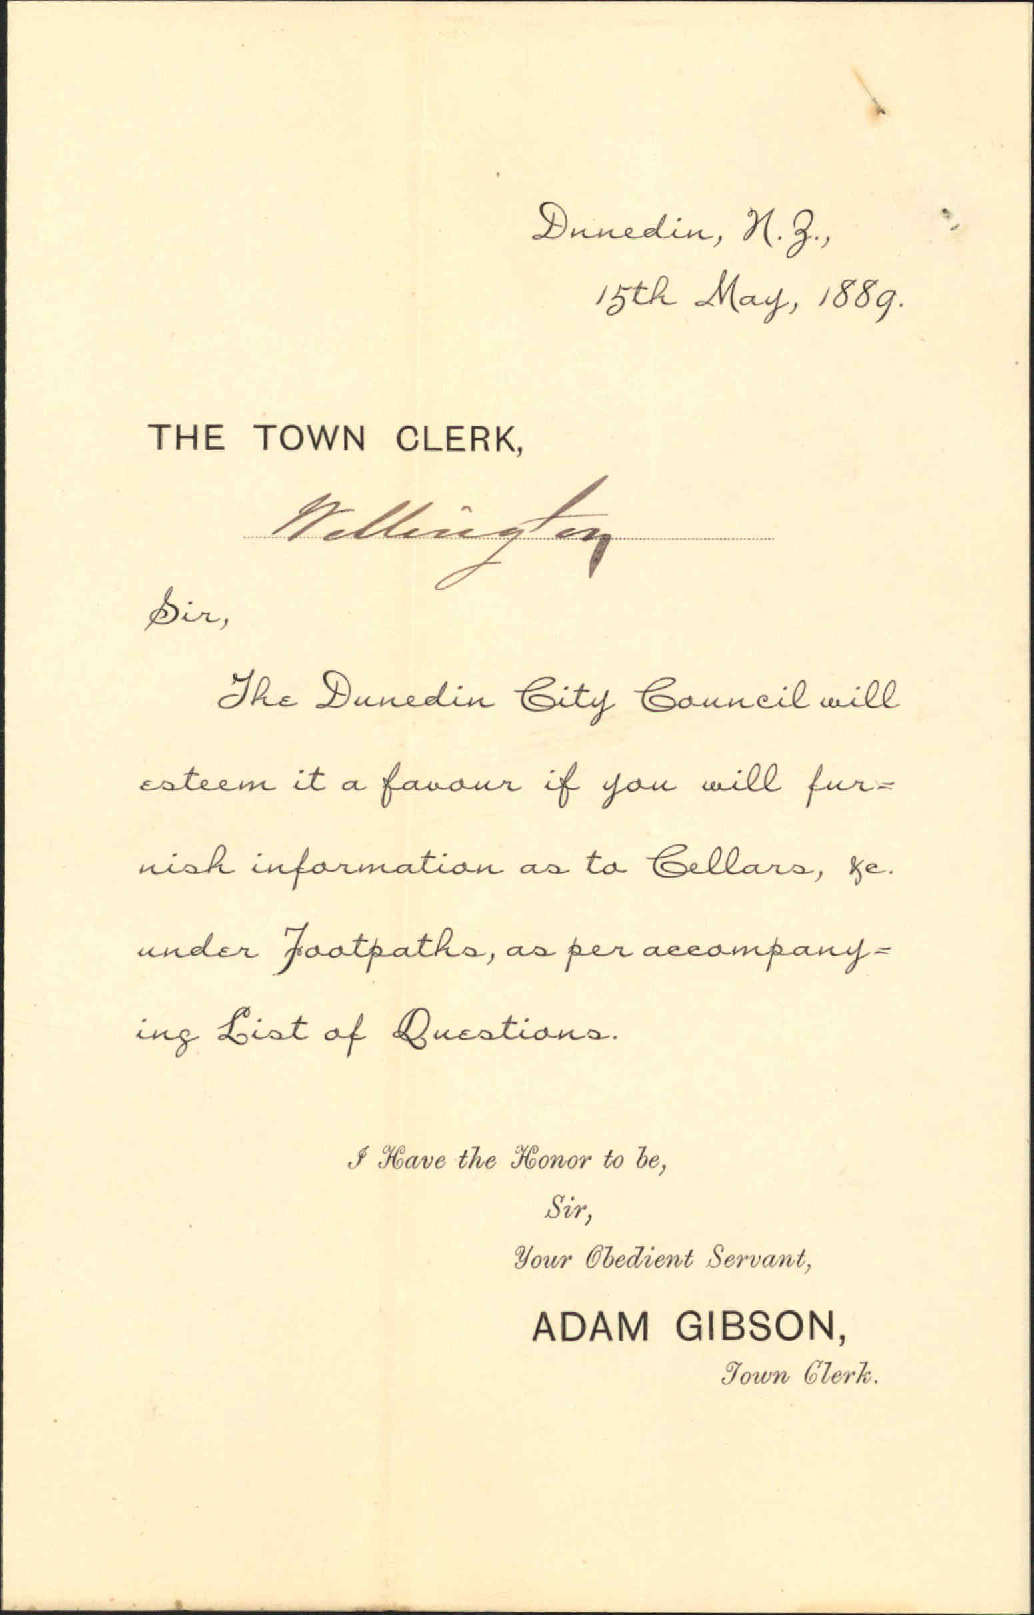 Dunedin, N.Z.,
15th May, 1889.
THE TOWN CLERK,
Wellington
Sir,
The Dunedin City Council will
esteem it a favour if you will fur=
nish information as to Cellars, &c.
under Footpaths, as per accompany=
ing List of Questions.
I Have the Honor to be,
Sir,
Your Obedient Servant,
ADAM GIBSON,
Town Clerk.